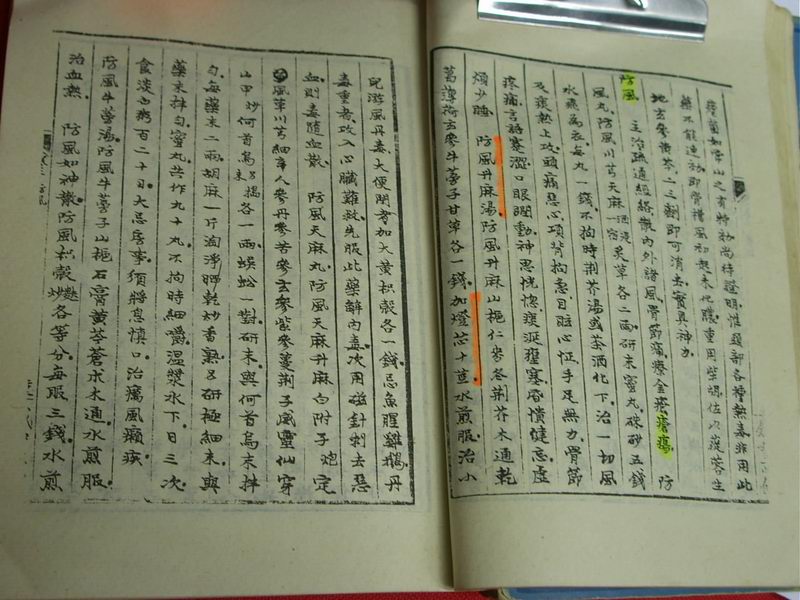 藥不能速初即覺
地方參黃芩二三劑即可消去實具神力
防風 主治疏通經絡散內外諸風骨節痛療金瘡瘡瘍 防
風丸防風川芎天麻酒浸一宿炙草各二兩研末蜜丸硃砂五錢
水飛為衣每丸一錢不拘時荆芥湯或茶酒化下治一切風
及痰熱上攻頭痛惡心項背拘急目眩心怔手足無力骨節
疼痛言語蹇澀口眼瞤動神思恍惚痰涎壅塞昏憒健忘虛
煩少睡 防風升麻湯防風升麻山梔仁麥冬荆芥木通乾
葛薄荷玄參牛蒡子甘草各一錢加燈芯十莖水煎服治小
兒游風丹毒大便閉者加大黃枳殼各一錢忌魚腥雞鵝丹
毒重者攻入心臟難救先服此藥解內毒次用磁針刺去惡
血則毒隨血散 防風天麻丸防風天麻升麻白附子炮定
風草川芎細辛人參丹參苦參玄參紫參蔓荆子威靈仙穿
山甲炒何首烏另搗末各一兩蜈蚣一對研末與何首烏末拌
勻每藥末二兩胡麻一斤淘淨晒乾炒香熟另研極細末與
藥末拌勻蜜丸共作九十丸不拘時細嚼溫漿水下日三次
食淡白粥百二十日大忌房事須將息慎口治癘風癩疾
防風牛蒡湯防風牛蒡子山梔石膏黃芩蒼朮木通水煎服
治血熱 防風如神散防風枳殼麩炒各等分每服三錢水煎